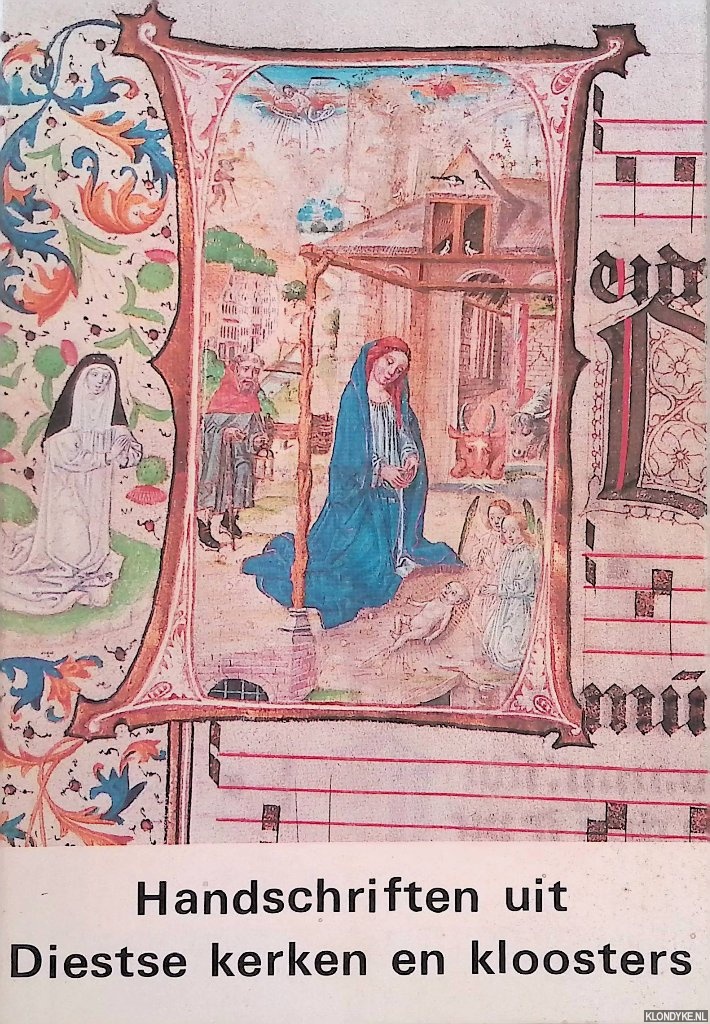 un
mi
Handschriften uit
Diestse kerken en kloosters
KLONDYKE.NL